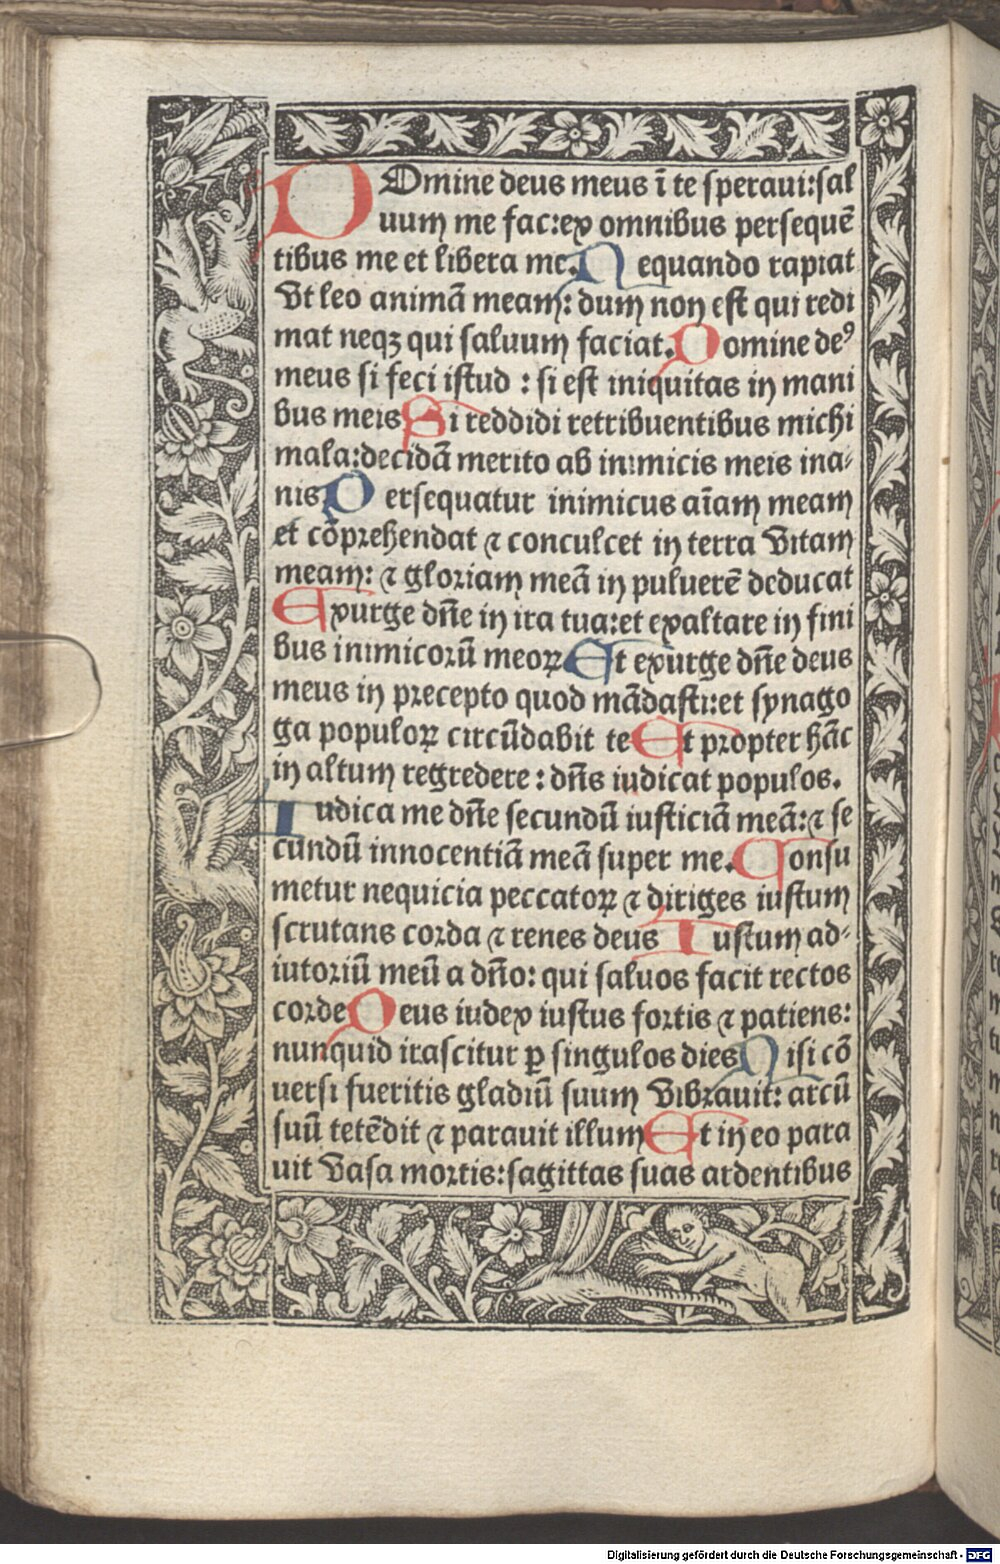 DOmine deus meus ī te speraui:sal
uum me fac:ex omnibus persequē
tibus me et libera me. Nequando rapiat
vt leo animā meam: dum non est qui redi
mat neqꝫ qui saluum faciat. Domine deꝰ
meus si feci istud : si est iniquitas in mani
bus meis Si reddidi retribuentibus michi
mala:decidā merito ab inimicis meis ina⸗
nis Persequatur inimicus aīam meam
et cōprehendat ⁊ conculcet in terra vitam
meam: ⁊ gloriam meā in puluerē deducat
Exurge dn̄e in ira tua:et exaltare in fini
bus inimicorū meoꝝ Et exurge dn̄e deus
meus in precepto quod mādasti:et synago
ga populoꝝ circūdabit te Et propter hāc
in altum regredere : dn̄s iudicat populos.
Iudica me dn̄e secundū iusticiā meā:⁊ se
cundū innocentiā meā super me. Consu
metur nequicia peccatoꝝ ⁊ diriges iustum
scrutans corda ⁊ renes deus Iustum ad⸗
iutoriū meū a dn̄o: qui saluos facit rectos
corde Deus iudex iustus fortis ⁊ patiens:
nunquid irascitur ꝑ singulos dies Nisi cō
uersi fueritis gladiū suum vibrauit: arcū
suū tetēdit ⁊ parauit illum Et in eo para
uit vasa mortis:sagittas suas ardentibus
Digitalisierung gefördert durch die Deutsche Forschungsgemeinschaft - DFG